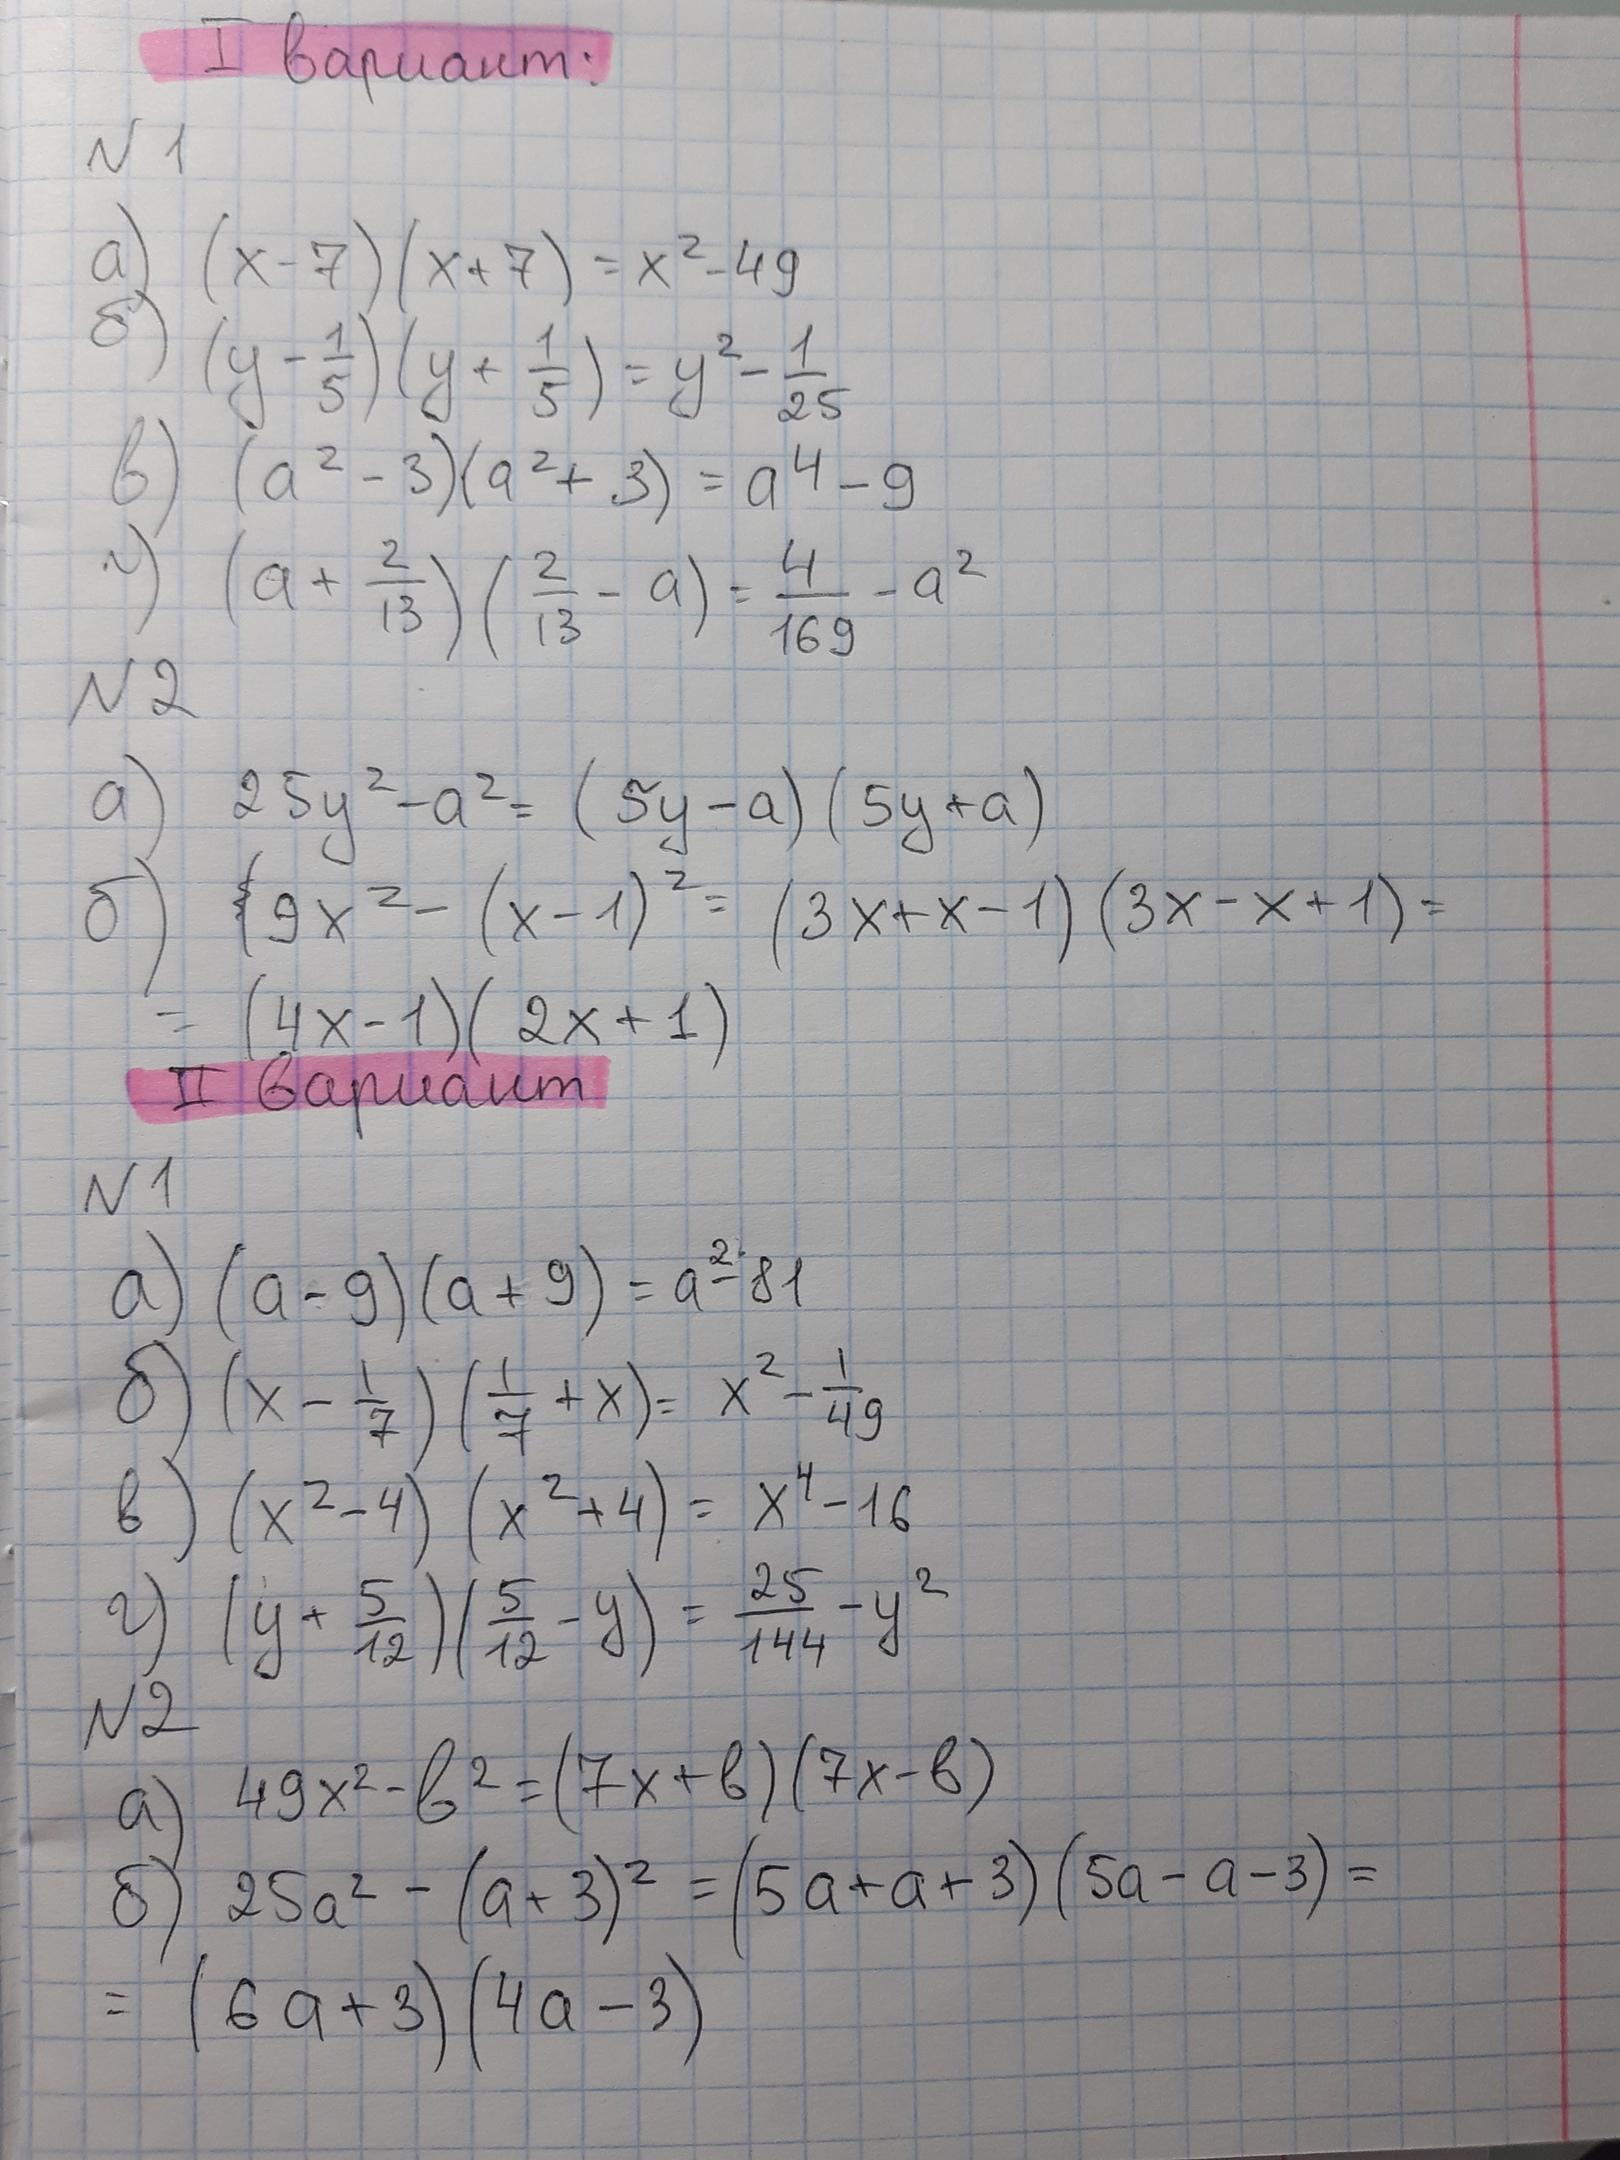 I вариант:
N 1
а) (x-7)(x+7)=x²-49
б) (y-1/5)(y+1/5)=y²-1/25
в) (a²-3)(a²+3)=a⁴-9
г) (a+2/13)(2/13-a)=4/169-a²
N 2
а) 25y²-a²=(5y-a)(5y+a)
б) 9x²-(x-1)²=(3x+x-1)(3x-x+1)=
=(4x-1)(2x+1)
II вариант
N 1
а) (a-9)(a+9)=a²-81
б) (x-1/7)(1/7+x)=x²-1/49
в) (x²-4)(x²+4)=x⁴-16
г) (y+5/12)(5/12-y)=25/144-y²
N 2
а) 49x²-b²=(7x+b)(7x-b)
б) 25a²-(a+3)²=(5a+a+3)(5a-a-3)=
=(6a+3)(4a-3)